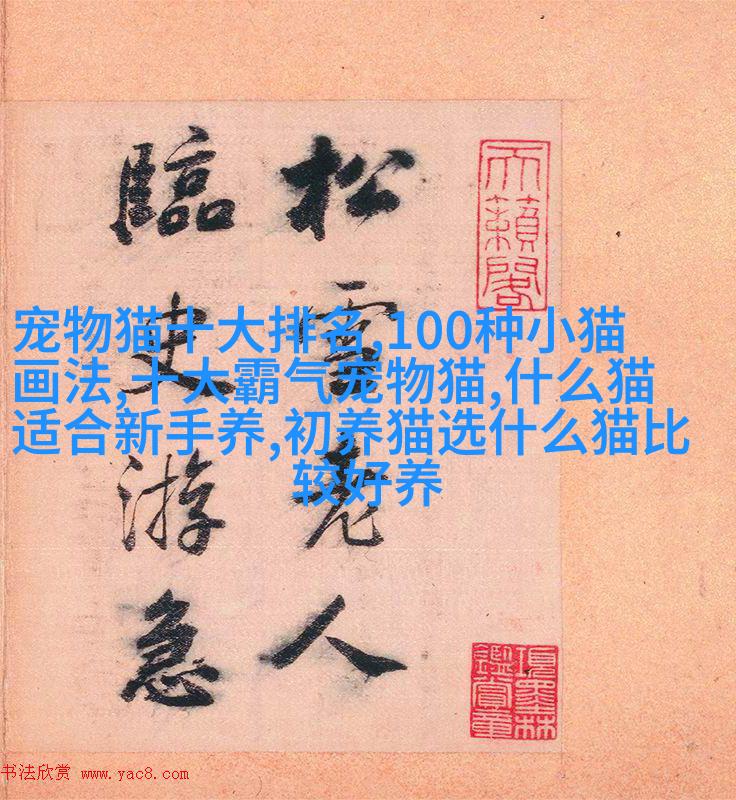 松雪老人
臨史游急
天籟閣
項墨林
鑑賞章
宠物猫十大排名,100种小猫
画法,十大霸气宠物猫,什么猫
适合新手养,初养猫选什么猫比
较好养
书法欣赏 www.yac8.com